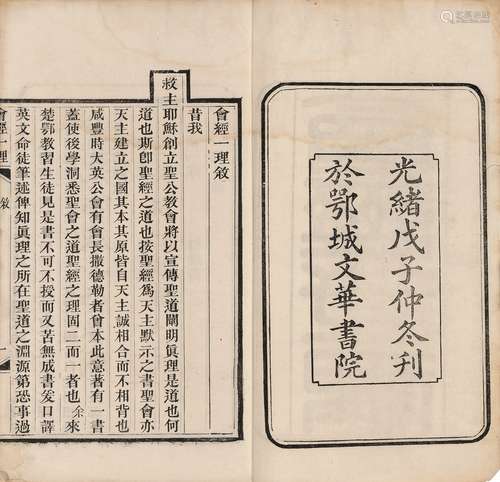 光緒戊子仲冬刋
於鄂城文華書院
會經一理敘
昔我
救主耶穌創立聖公教會將以宣傳聖道闡明眞理是道也何
道也斯卽聖經之道也按聖經爲天主默示之書聖會亦
天主建立之國其本其原皆自天主誠相合而不相背也
咸豐時大英公會有會長撒德勒者會本此意著有一書
蓋使後學洞悉聖會之道聖經之理固二而一者也余來
楚鄂教習生徒見是書不可不授而又苦無成書爰口譯
英文命徒筆述俾知眞理之所在聖道之淵源第恐事過
會經一理
敘
一